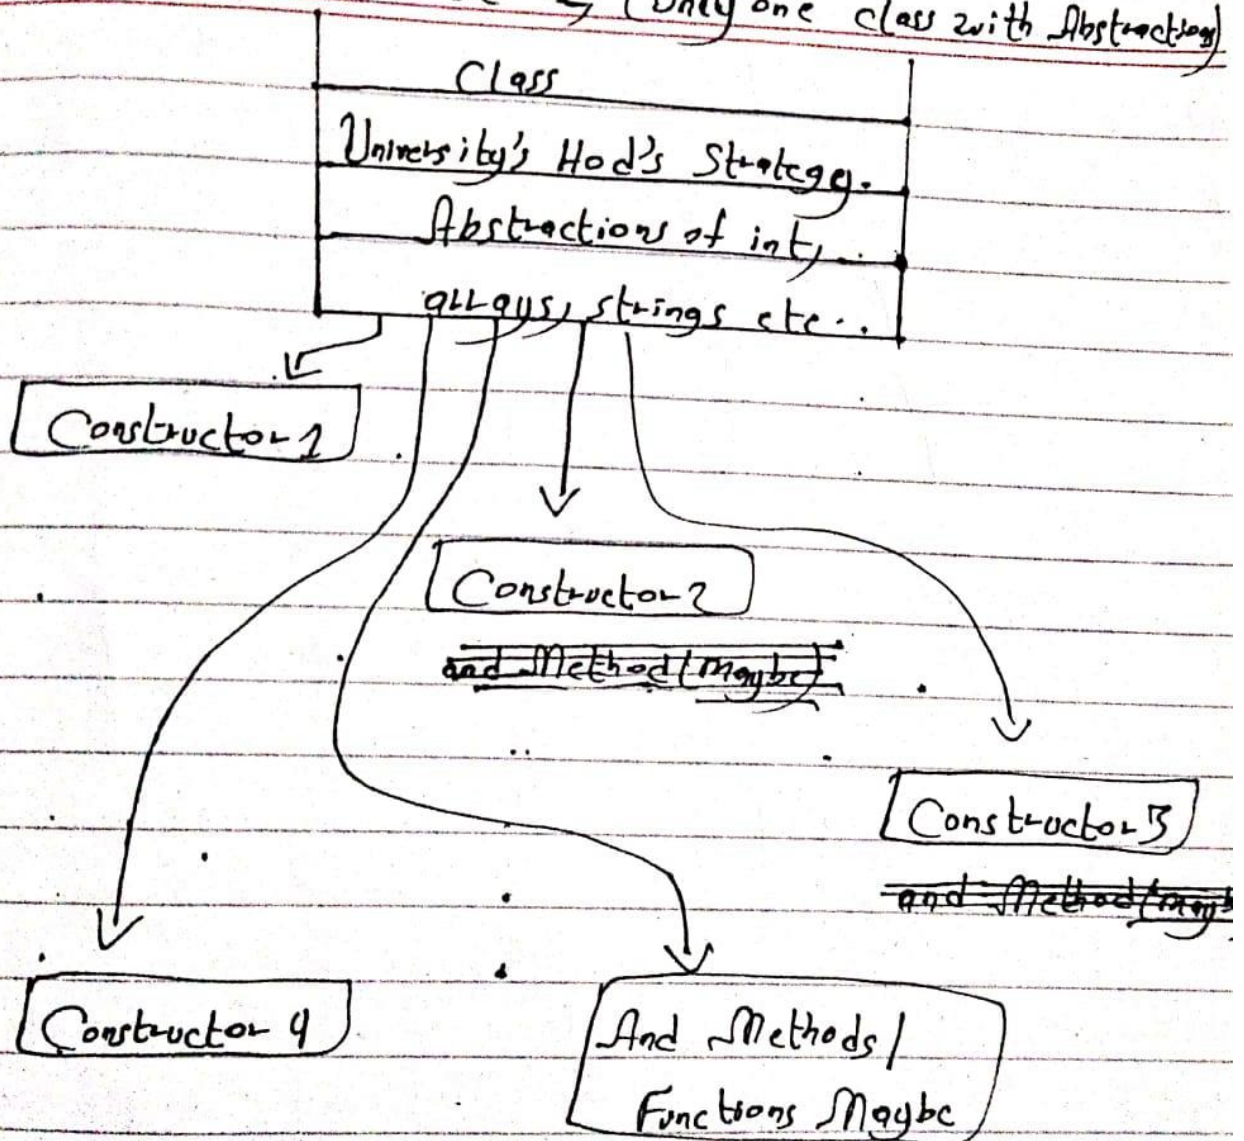 (Only one class with Abstraction)
Class
University's Hod's Strategy.
Abstractions of int, ...
arrays, strings etc...
Constructor 1
Constructor 2
and Method (Maybe)
Constructor 3
and Method (Mayb
Constructor 4
And Methods /
Functions Maybe